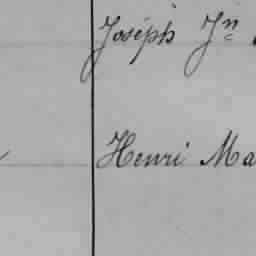 Joséph Jn
Henri Ma